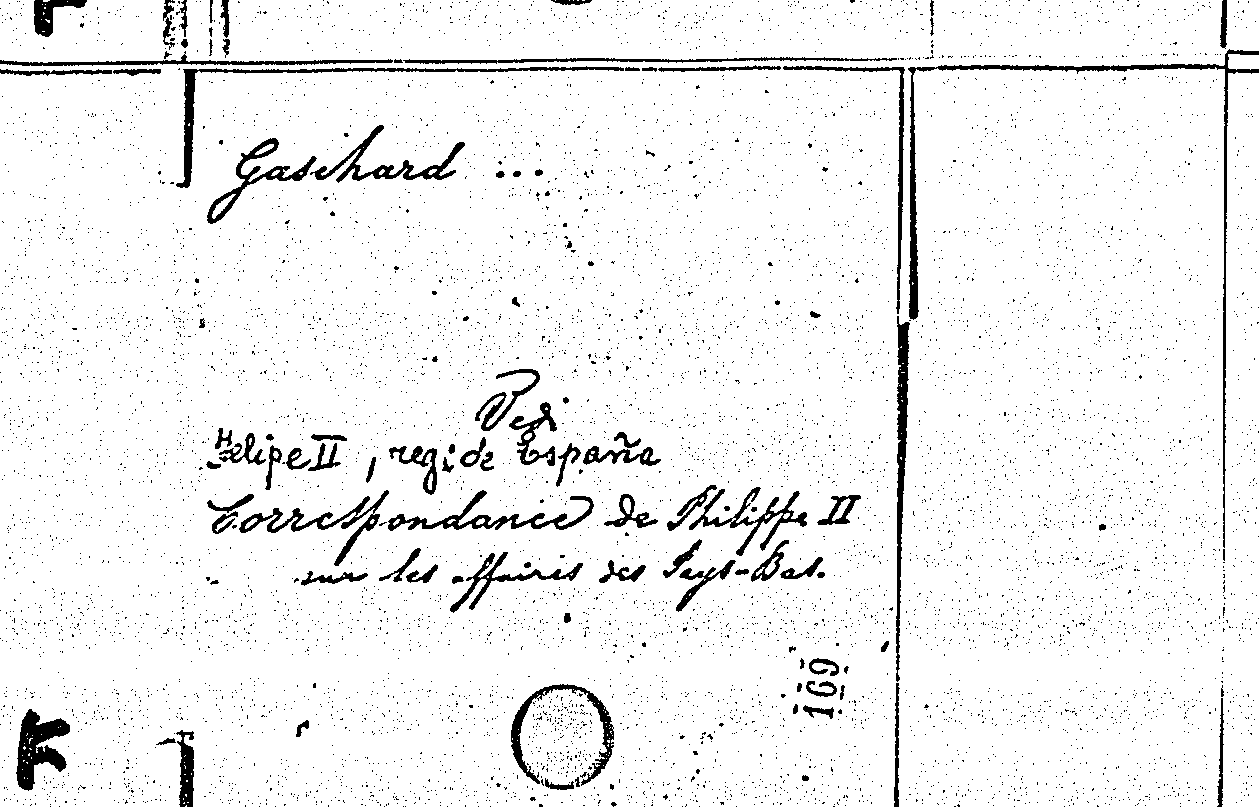 Gaschard ...
Vedi
Felipe II, regi de España
Correspondance de Philippe II
sur les affaires des Pays-Bas.
169